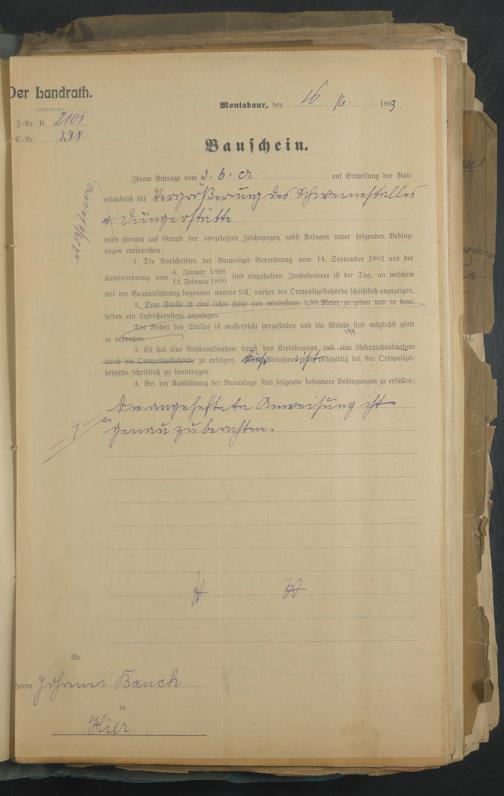 Der Landrath.
J.-Nr. B. 2101
C.-Nr. 278
Montabaur, den 16/6. 1903.
Bauschein.
Ihrem Antrage vom 3. 6. cr. auf Ertheilung der Bau-
erlaubniß für Vergrößerung des Schweinestalles
u. Düngerstätte
wird hiermit auf Grund der vorgelegten Zeichnungen nebst Anlagen unter folgenden Bedin-
gungen entsprochen:
1. Die Vorschriften der Baupolizei-Verordnung vom 14. September 1902 und der
Kaminordnung vom 4. Januar 1898
12. Februar 1900 sind einzuhalten. Insbesondere ist der Tag, an welchem
mit der Bauausführung begonnen werden soll, vorher der Ortspolizeibehörde schriftlich anzuzeigen.
2. Dem Stalle ist eine lichte Höhe von mindestens 2,50 Meter zu geben und in dem-
selben ein Luftschornstein anzulegen.
Der Boden des Stalles ist wasserdicht herzustellen und die Wände sind möglichst glatt
zu
3. Es hat eine Rohbauabnahme durch das Kreisbauamt und eine Gebrauchsabnahme
durch die Ortspolizeibehörde zu erfolgen. Diese Abnahme ist rechtzeitig bei der Ortspolizei-
behörde schriftlich zu beantragen.
4. Bei der Ausführung der Bauanlage sind folgende besondere Bedingungen zu erfüllen:
Die angeheftete Anweisung ist
genau zu beachten.
An
Herrn Johann Bauch
in
Hier